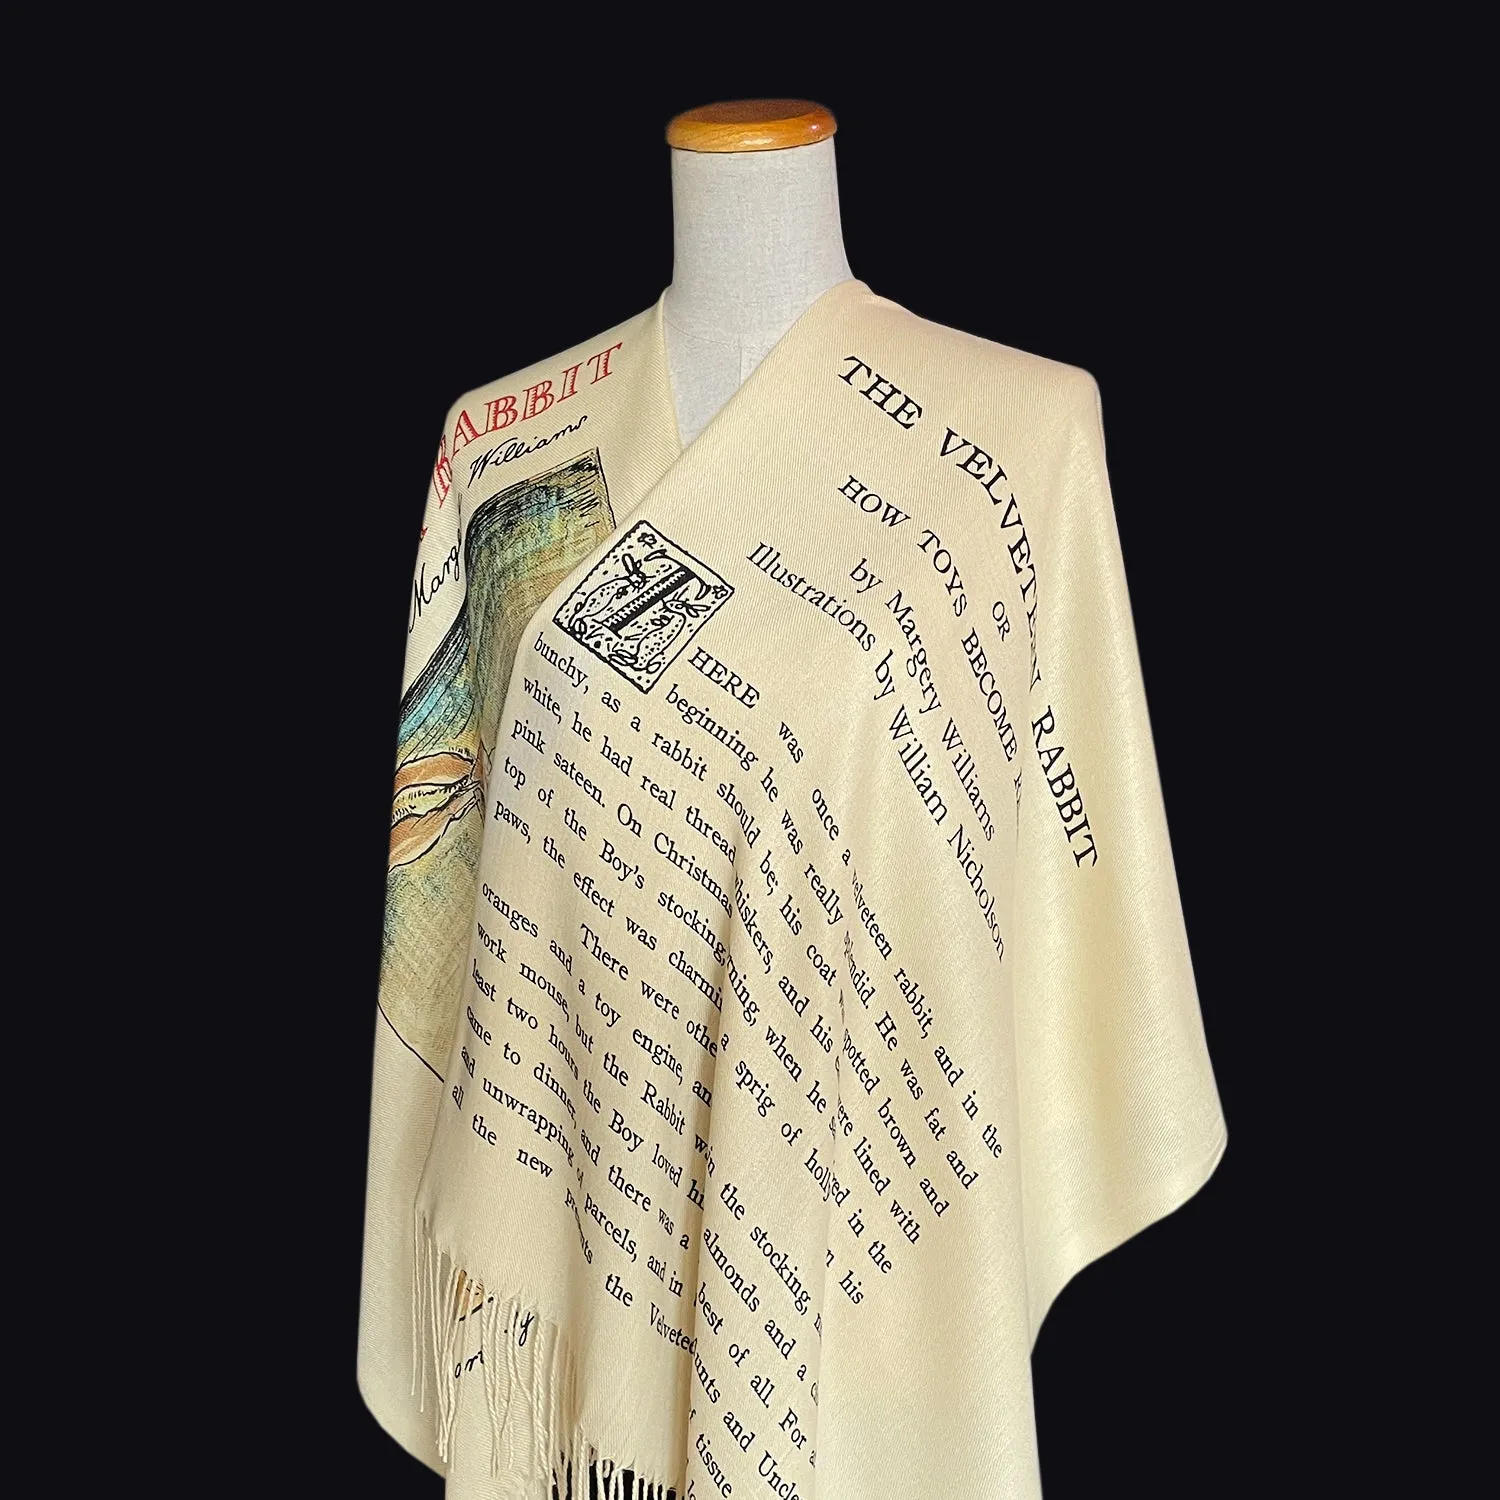 RABBIT
Williams
THE VELVETEEN RABBIT
OR
HOW TOYS BECOME
by Margery Williams
Illustrations by William Nicholson
THERE was once a velveteen rabbit, and in the
beginning he was really splendid. He was fat and
bunchy, as a rabbit should be; his coat spotted brown and
white, he had real thread whiskers, and his were lined with
pink sateen. On Christmas morning, when he in the
top of the Boy's stocking, a sprig of holly his
paws, the effect was
There were in the stocking,
oranges and a toy engine, almonds and a
work mouse, but the Rabbit best of all. For
least two hours the Boy loved and Uncles
came to dinner, and there was a tissue
and unwrapping of parcels, and in
all the new presents the Velveteen